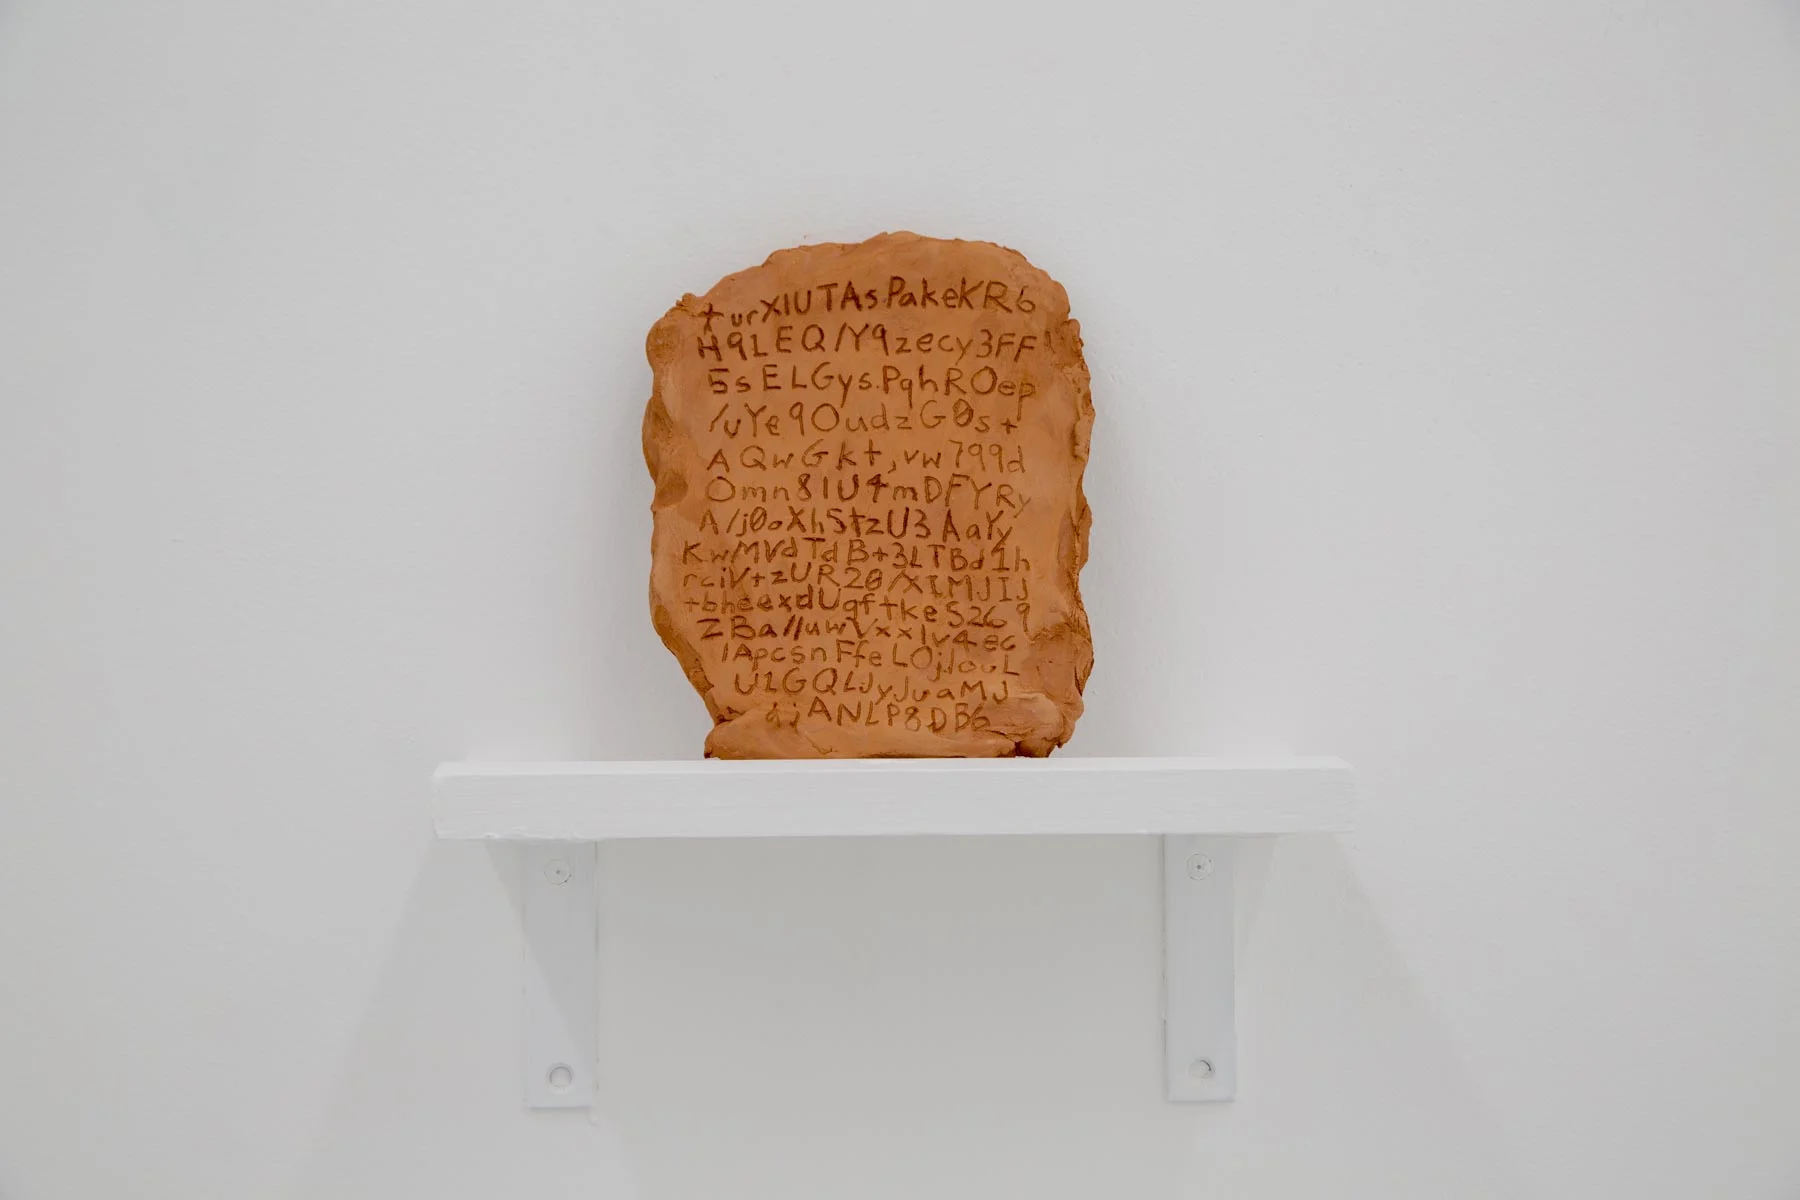 turXIUTAsPakeKR6
H91EQ/Y9zecy3FF
5sELGys.PqhROep
/uYe9OudzG0s+
AQwGkt,vw799d
Omn81U4mDFYRy
A/j0oXhStzU3AaYy
KwMVdTdB+3LTBd1h
rciV+zUR20/XIMJIJ
+bheexdUqftkeS269
ZBa//uwVxxlv4ec
IApcsnFfeLOj1ouL
U1GQLJyJuaMJ
djANLP8DB6